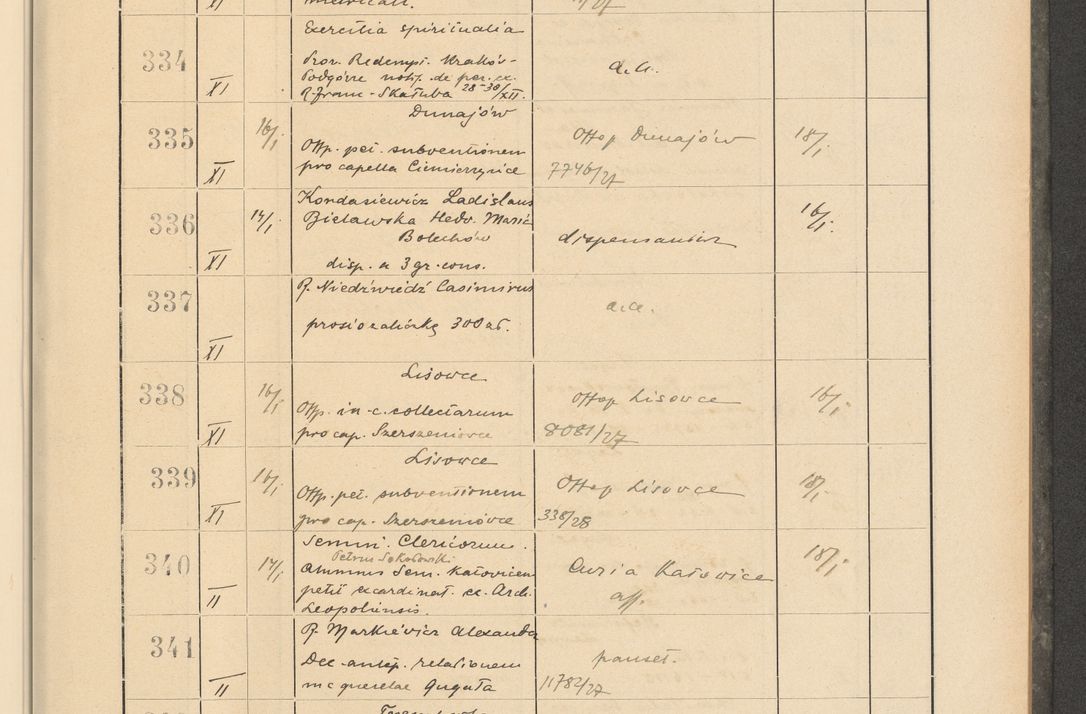 XI
334
XI
Exercitia spiritualia
Prov. Redempt. Kraków-
Podgórze notif. de per. ex.
R. Franc. Skałuba 28-30/XII.
a.a.
335
XI
16/I
Dunajów
Offp. pet. subventionem
pro capella Ciemierzynce
Offop Dunajów
7746/27
18/I
336
XI
14/I
Kondasiewicz Ladislaus
Bielawska Hedv. Maria
Bolechów
disp. a 3 gr. cons.
dispensavit
16/I
337
XI
R. Niedźwiedź Casimirus
prosi o zaliczkę 300 zł.
a.a.
338
XI
16/I
Lisowce
Offp. in c. collectarum
pro cap. Szerszeniowce
Offop Lisowce
8081/27
16/I
339
XI
16/I
Lisowce
Offp. pet. subventionem
pro cap. Szerszeniowce
Offop Lisowce
338/28
18/I
340
II
14/I
Semin. Clericorum.
Petrus Sokołowski
alumnus Sem. Katovicen
petit excardinat. ex Arch.
Leopoliensis.
Curia Katowice
aff.
18/I
341
II
R. Markiewicz Alexander
Dec. antep. relationem
querelae Guguła
11782/27